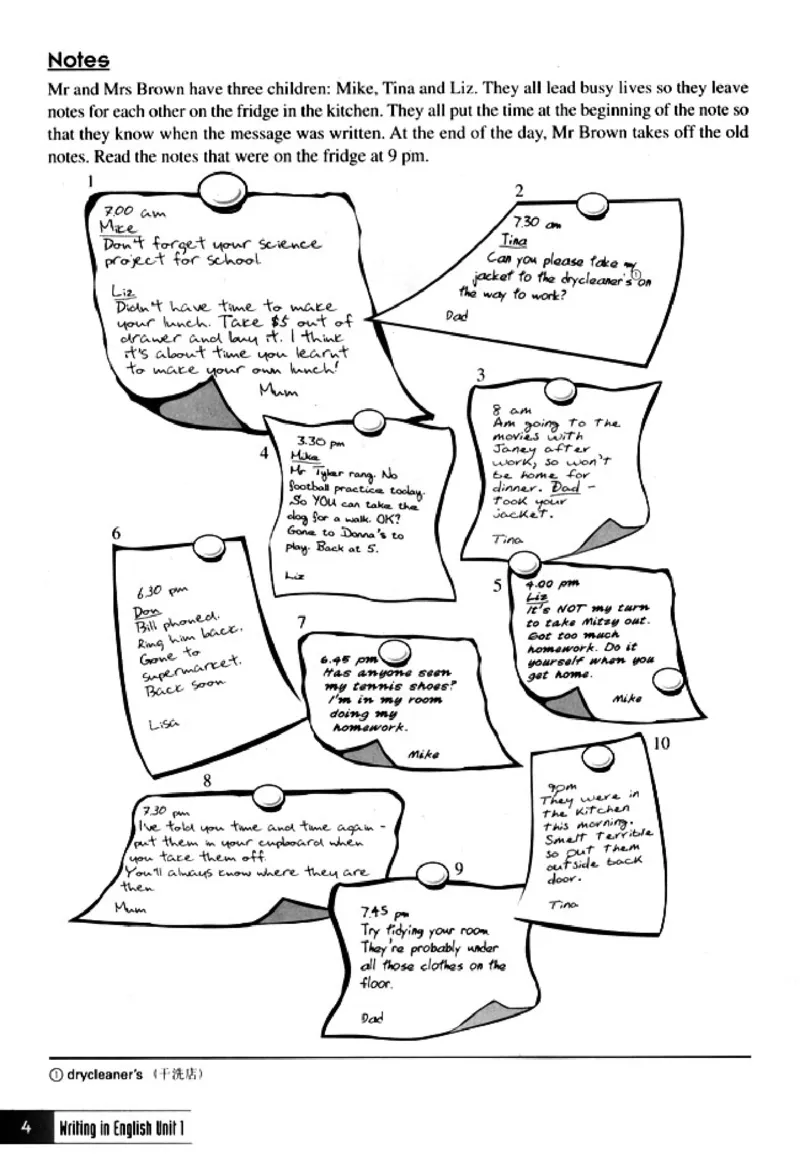 Notes
Mr and Mrs Brown have three children: Mike, Tina and Liz. They all lead busy lives so they leave
notes for each other on the fridge in the kitchen. They all put the time at the beginning of the note so
that they know when the message was written. At the end of the day, Mr Brown takes off the old
notes. Read the notes that were on the fridge at 9 pm.
1
7.00 am
Mike
Don't forget your science
project for school.
Liz
Didn't have time to make
your lunch. Take $5 out of
drawer and buy it. I think
it's about time you learnt
to make your own lunch!
Mum
2
7.30 am
Tina
Can you please take my
jacket to the drycleaner's① on
the way to work?
Dad
3
8 am
Am going to the
movies with
Janey after
work, so won't
be home for
dinner. Dad –
took your
jacket.
Tina
4
3.30 pm
Mike
Mr Tyker rang. No
football practice today.
So YOU can take the
dog for a walk. OK?
Gone to Donna's to
play. Back at 5.
Liz
5
4.00 pm
Liz
It's NOT my turn
to take Mitzy out.
Got too much
homework. Do it
yourself when you
get home.
Mike
6
6.30 pm
Don
Bill phoned.
Ring him back.
Gone to
supermarket.
Back soon.
Lisa
7
6.45 pm
Has anyone seen
my tennis shoes?
I'm in my room
doing my
homework.
Mike
8
7.30 pm
I've told you time and time again –
put them in your cupboard when
you take them off.
You'll always know where they are
then.
Mum
9
7.45 pm
Try tidying your room.
They're probably under
all those clothes on the
floor.
Dad
10
9pm
They were in
the kitchen
this morning.
Smelt terrible
so put them
outside back
door.
Tina
① drycleaner's (干洗店)
4 Writing in English Unit 1